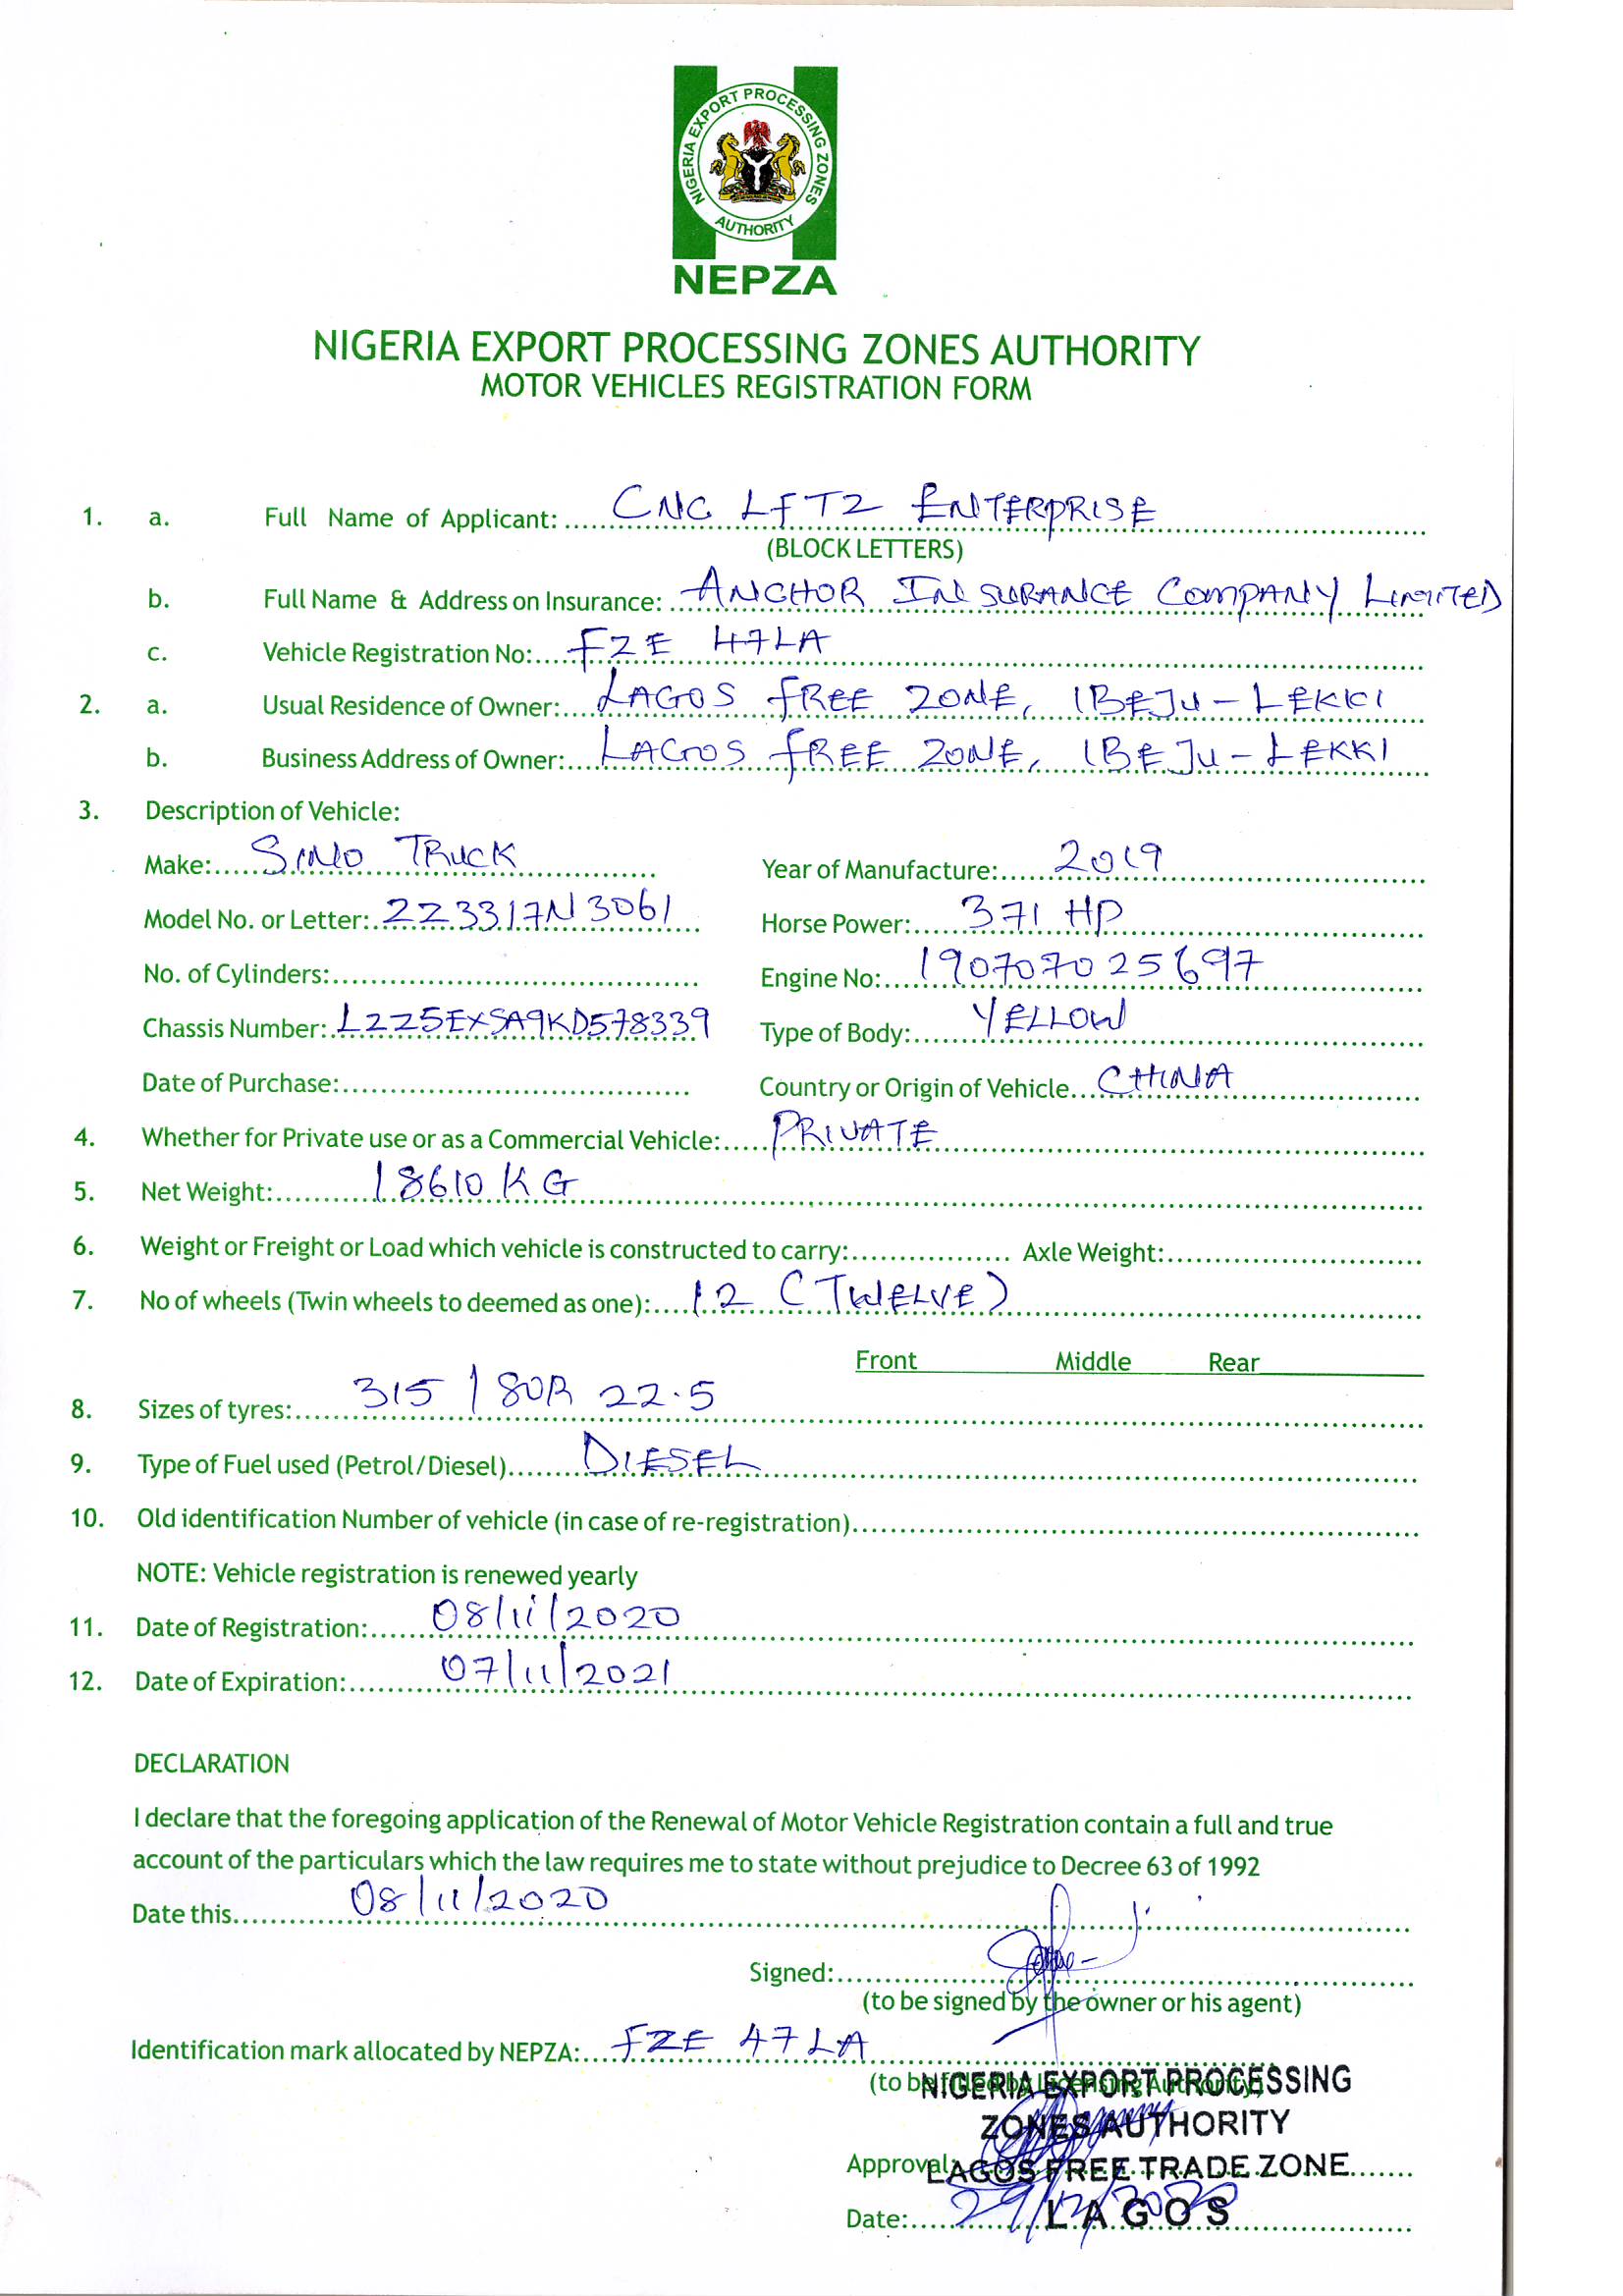 NIGERIA EXPORT PROCESSING ZONES
AUTHORITY
NEPZA
NIGERIA EXPORT PROCESSING ZONES AUTHORITY
MOTOR VEHICLES REGISTRATION FORM
1. a. Full Name of Applicant: CNC LFTZ ENTERPRISE
(BLOCK LETTERS)
b. Full Name & Address on Insurance: ANCHOR INSURANCE COMPANY LIMITED
c. Vehicle Registration No: FZE 47LA
2. a. Usual Residence of Owner: LAGOS FREE ZONE, IBEJU-LEKKI
b. Business Address of Owner: LAGOS FREE ZONE, IBEJU-LEKKI
3. Description of Vehicle:
Make: SINO TRUCK Year of Manufacture: 2019
Model No. or Letter: ZZ3317N3061 Horse Power: 371 HP
No. of Cylinders: Engine No: 190707025697
Chassis Number: LZZ5EXSA9KD578339 Type of Body: YELLOW
Date of Purchase: Country or Origin of Vehicle CHINA
4. Whether for Private use or as a Commercial Vehicle: PRIVATE
5. Net Weight: 18610 KG
6. Weight or Freight or Load which vehicle is constructed to carry: Axle Weight:
7. No of wheels (Twin wheels to deemed as one): 12 (TWELVE)
Front Middle Rear
8. Sizes of tyres: 315/80R 22.5
9. Type of Fuel used (Petrol/Diesel) DIESEL
10. Old identification Number of vehicle (in case of re-registration)
NOTE: Vehicle registration is renewed yearly
11. Date of Registration: 08/11/2020
12. Date of Expiration: 07/11/2021
DECLARATION
I declare that the foregoing application of the Renewal of Motor Vehicle Registration contain a full and true
account of the particulars which the law requires me to state without prejudice to Decree 63 of 1992
Date this 08/11/2020
Signed:
(to be signed by the owner or his agent)
Identification mark allocated by NEPZA: FZE 47LA
(to be filled by Licensing Authority)
NIGERIA EXPORT PROCESSING
ZONES AUTHORITY
Approval: LAGOS FREE TRADE ZONE
Date: 29/12/2020 LAGOS